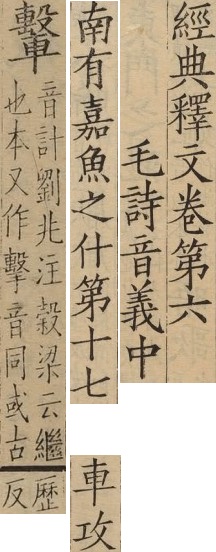 經典釋文卷第六
毛詩音義中
南有嘉魚之什第十七
車攻
轚
音計劉兆注穀梁云繼
也本又作擊音同或古
歷
反